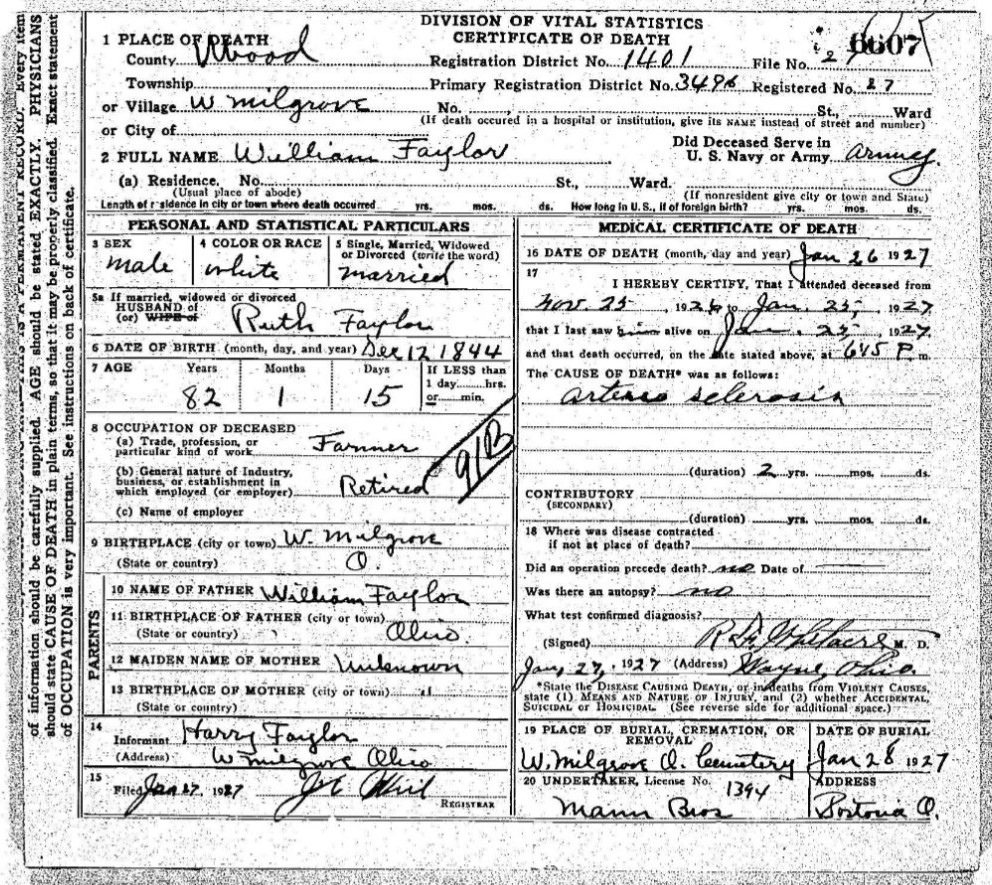 DIVISION OF VITAL STATISTICS
CERTIFICATE OF DEATH
6607
1 PLACE OF DEATH
County Wood
Registration District No. 1401 File No.
Township
Primary Registration District No. 3496 Registered No. 27
or Village W Milgrove No. St., Ward
(If death occured in a hospital or institution, give its NAME instead of street and number)
or City of
2 FULL NAME William Faylor
Did Deceased Serve in
U. S. Navy or Army Army
(a) Residence. No. St., Ward.
(Usual place of abode)
(If nonresident give city or town and State)
Length of residence in city or town where death occurred yrs. mos. ds. How long in U. S., if of foreign birth? yrs. mos. ds.
PERSONAL AND STATISTICAL PARTICULARS
3 SEX
male
4 COLOR OR RACE
white
5 Single, Married, Widowed
or Divorced (write the word)
married
5a If married, widowed or divorced
HUSBAND of
(or) WIFE of
Ruth Faylor
6 DATE OF BIRTH (month, day, and year) Dec 12 1844
7 AGE Years Months Days
82 1 15
If LESS than
1 day hrs.
or min.
8 OCCUPATION OF DECEASED
(a) Trade, profession, or
particular kind of work Farmer
(b) General nature of Industry,
business, or establishment in
which employed (or employer) Retired
(c) Name of employer
91B
9 BIRTHPLACE (city or town) W. Milgrove
(State or country) O.
PARENTS
10 NAME OF FATHER William Faylor
11 BIRTHPLACE OF FATHER (city or town)
(State or country) Ohio.
12 MAIDEN NAME OF MOTHER Unknown
13 BIRTHPLACE OF MOTHER (city or town) "
(State or country)
14
Informant Harry Faylor
(Address) W Milgrove Ohio
15
Filed Jan 27, 1927
REGISTRAR
MEDICAL CERTIFICATE OF DEATH
16 DATE OF DEATH (month, day and year) Jan 26 1927
17
I HEREBY CERTIFY, That I attended deceased from
Nov. 25, 1926 to Jan. 25, 1927
that I last saw him alive on Jan. 25, 1927
and that death occurred, on the date stated above, at 645 P. m.
The CAUSE OF DEATH* was as follows:
arterio sclerosis
(duration) 2 yrs. mos. ds.
CONTRIBUTORY
(SECONDARY)
(duration) yrs. mos. ds.
18 Where was disease contracted
if not at place of death?
Did an operation precede death? no Date of
Was there an autopsy? no
What test confirmed diagnosis?
(Signed) M. D.
Jan, 27, 1927 (Address) Wayne, Ohio.
*State the DISEASE CAUSING DEATH, or in deaths from VIOLENT CAUSES,
state (1) MEANS AND NATURE OF INJURY, and (2) whether ACCIDENTAL,
SUICIDAL or HOMICIDAL. (See reverse side for additional space.)
19 PLACE OF BURIAL, CREMATION, OR
REMOVAL
W. Milgrove O. Cemetery
DATE OF BURIAL
Jan 28 1927
20 UNDERTAKER, License No. 1394
Mann Bros
ADDRESS
Fostoria O.
of information should be carefully supplied. AGE should be stated EXACTLY. PHYSICIANS
should state CAUSE OF DEATH in plain terms, so that it may be properly classified. Exact statement
of OCCUPATION is very important. See instructions on back of certificate.